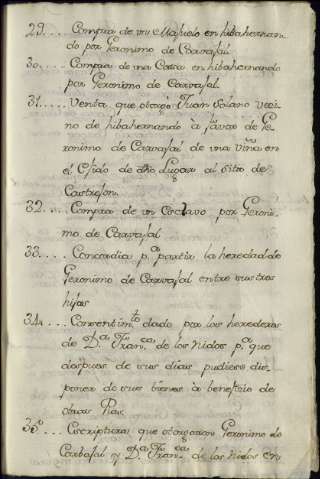 29.... Compra de un Majuelo en hibahernan
do por Geronimo de Carvajal.
30.... Compra de una Casa en hibahernando
por Geronimo de Carvajal.
31.... Venta que otorgò Juan Solano veci
no de hibahernando à favor de Ge
ronimo de Carvajal de una viña en
el Exido de dho Lugar al sitio de
Castrejon.
32.... Compra de un Esclavo por Geroni
mo de Carvajal
33.... Concordia p.ª partir la heredad de
Geronimo de Carvajal entre sus tres
hijas
34.... Consentim.to dado por los herederos
de D.ª Fran.ca de los Nidos p.ª que
despues de sus dias pudiese dis
poner de sus bienes à beneficio de
obras Pias.
35.... Escriptura que otorgaron Geronimo de
Carbajal y D.ª Fran.ca de los Nidos en